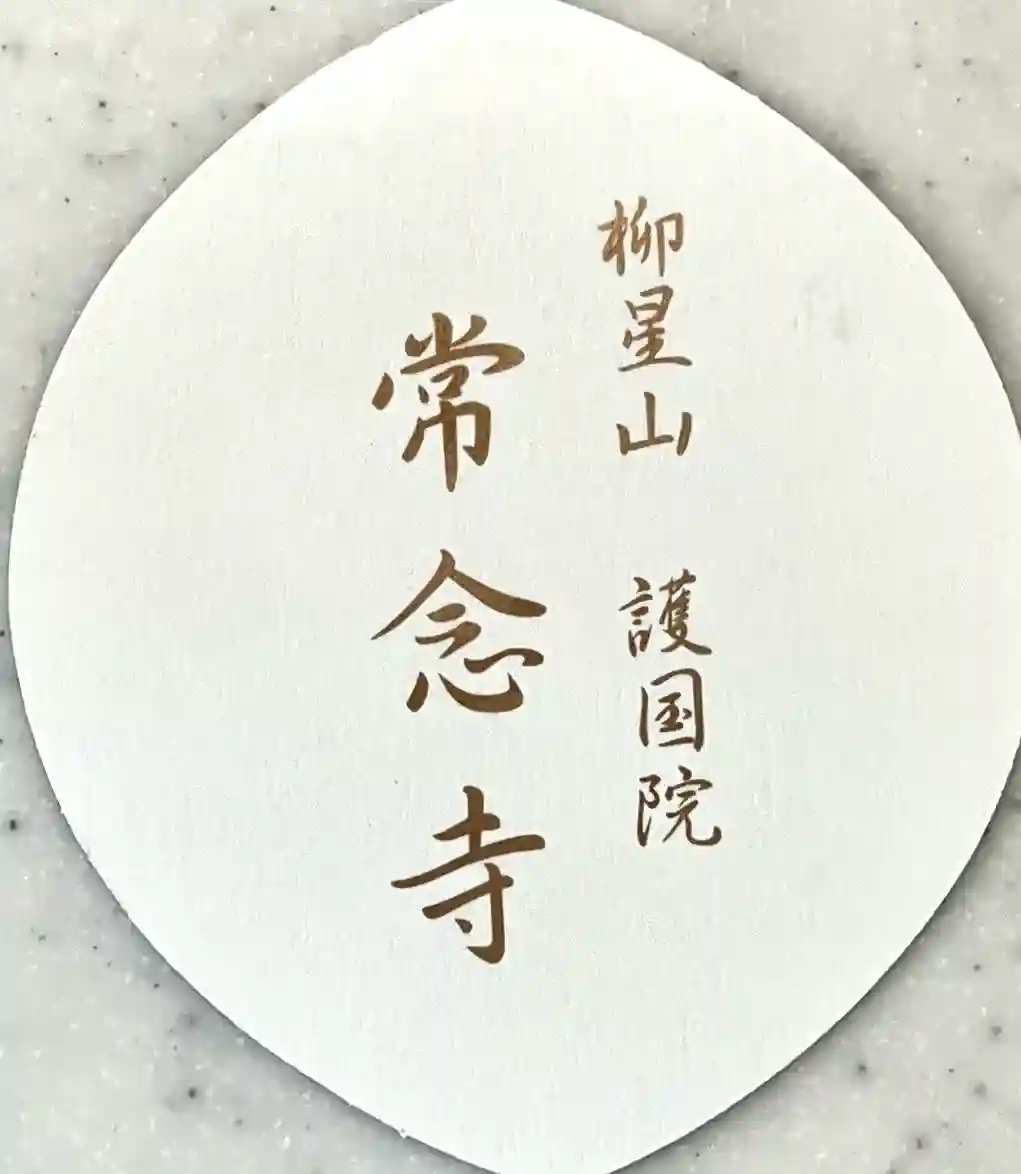 柳星山 護国院
常念寺